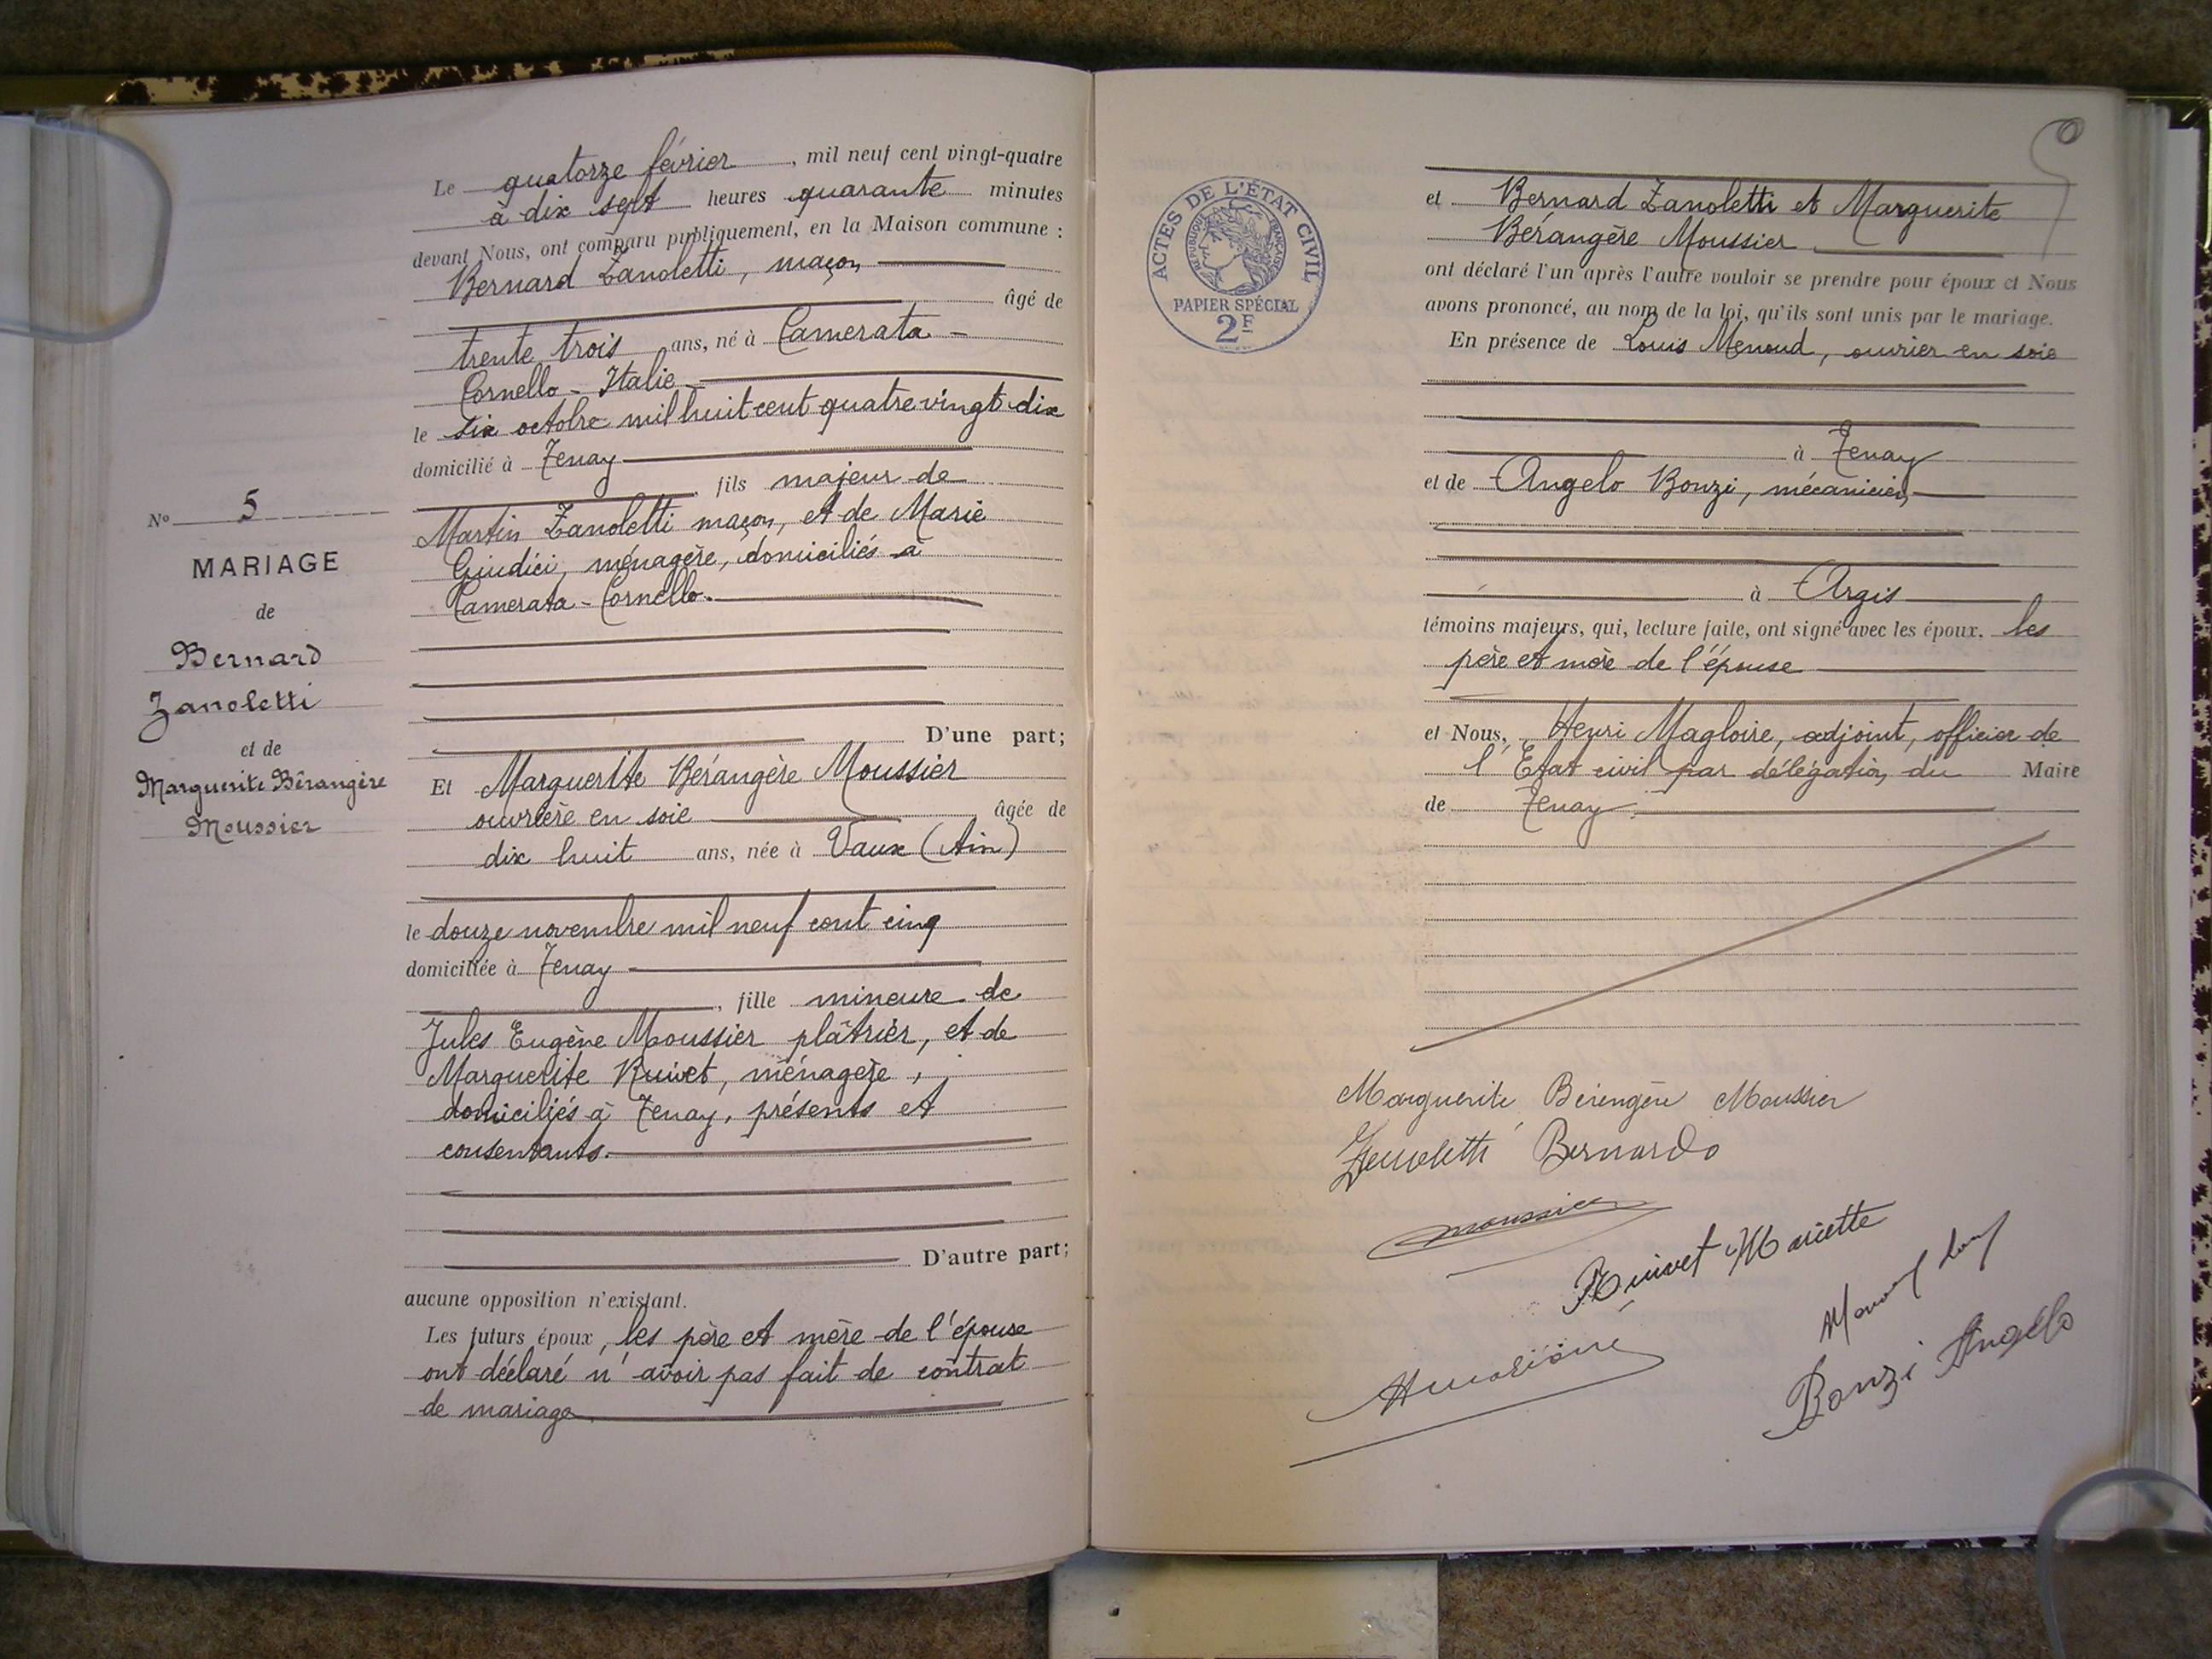 N° 5
MARIAGE
de
Bernard
Zanoletti
et de
Marguerite Bérangère
Moussier
Le quatorze février, mil neuf cent vingt-quatre
à dix sept heures quarante minutes
devant Nous, ont comparu publiquement, en la Maison commune :
Bernard Zanoletti, maçon
âgé de
trente trois ans, né à Camerata -
Cornello - Italie
le six octobre mil huit cent quatre vingt dix
domicilié à Tenay
, fils majeur de
Martin Zanoletti maçon, et de Marie
Giudici, ménagère, domiciliés à
Camerata - Cornello.
D'une part;
Et Marguerite Bérangère Moussier
ouvrière en soie âgée de
dix huit ans, née à Vaux (Ain)
le douze novembre mil neuf cent cinq
domiciliée à Tenay
, fille mineure de
Jules Eugène Moussier plâtrier, et de
Marguerite Ruivet, ménagère,
domiciliés à Tenay, présents et
consentants.
D'autre part;
aucune opposition n'existant.
Les futurs époux, les père et mère de l'épouse
ont déclaré n'avoir pas fait de contrat
de mariage.
ACTES DE L'ÉTAT CIVIL
RÉPUBLIQUE FRANÇAISE
PAPIER SPÉCIAL
2F
et Bernard Zanoletti et Marguerite
Bérangère Moussier
ont déclaré l'un après l'autre vouloir se prendre pour époux et Nous
avons prononcé, au nom de la loi, qu'ils sont unis par le mariage.
En présence de Louis Menoud, ouvrier en soie
à Tenay
et de Angelo Bonzi, mécanicien,
à Argis
témoins majeurs, qui, lecture faite, ont signé avec les époux. les
père et mère de l'épouse
et Nous, Henri Magloire, adjoint, officier de
l'Etat civil par délégation du Maire
de Tenay.
Marguerite Bérengère Moussier
Zanoletti Bernardo
Moussier
Ruivet Mariette
Bonzi Angelo